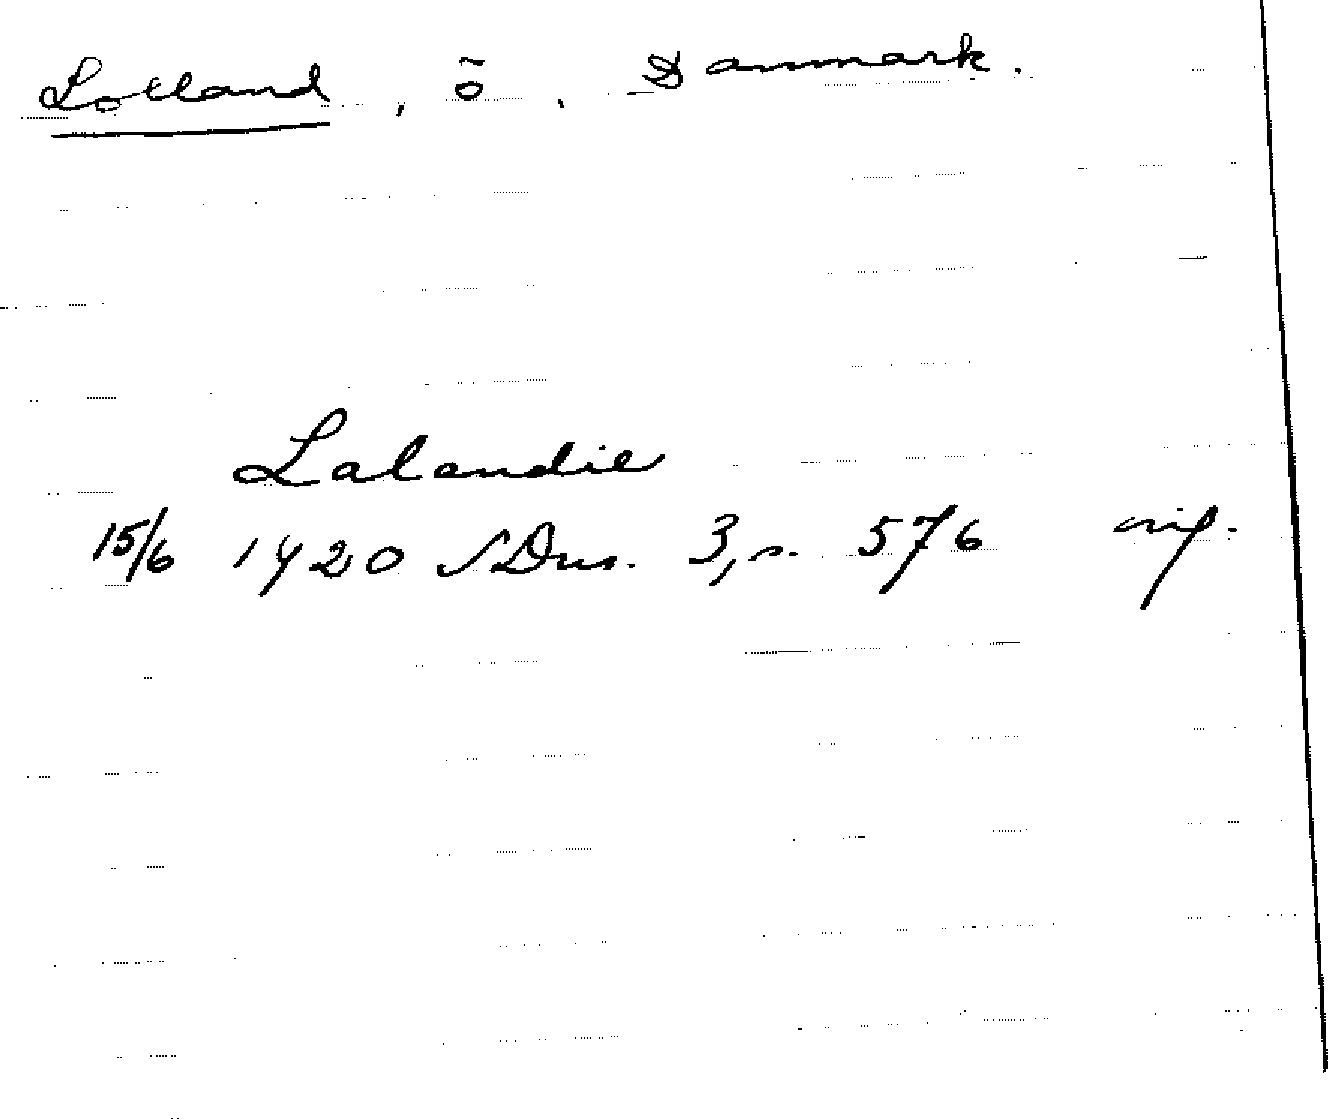 Lolland, ö, Danmark.
Lalandie
15/6 1420 SDns. 3, s. 576 orig.